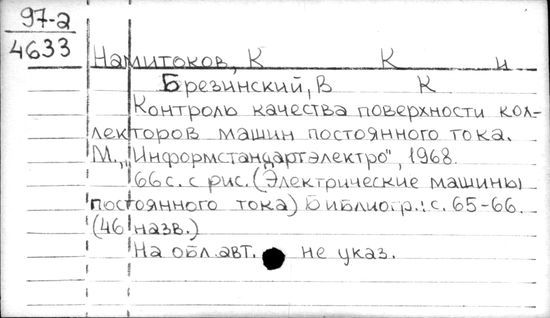 97-2
4633
Намитоков, К К и
Брезинский, В К
Контроль качества поверхности кол-
лекторов машин постоянного тока.
М., "Информстандартэлектро", 1968.
66 с. с рис. (Электрические машины
постоянного тока) Библиогр.: с. 65-66.
(46 назв.)
На обл. авт. не указ.